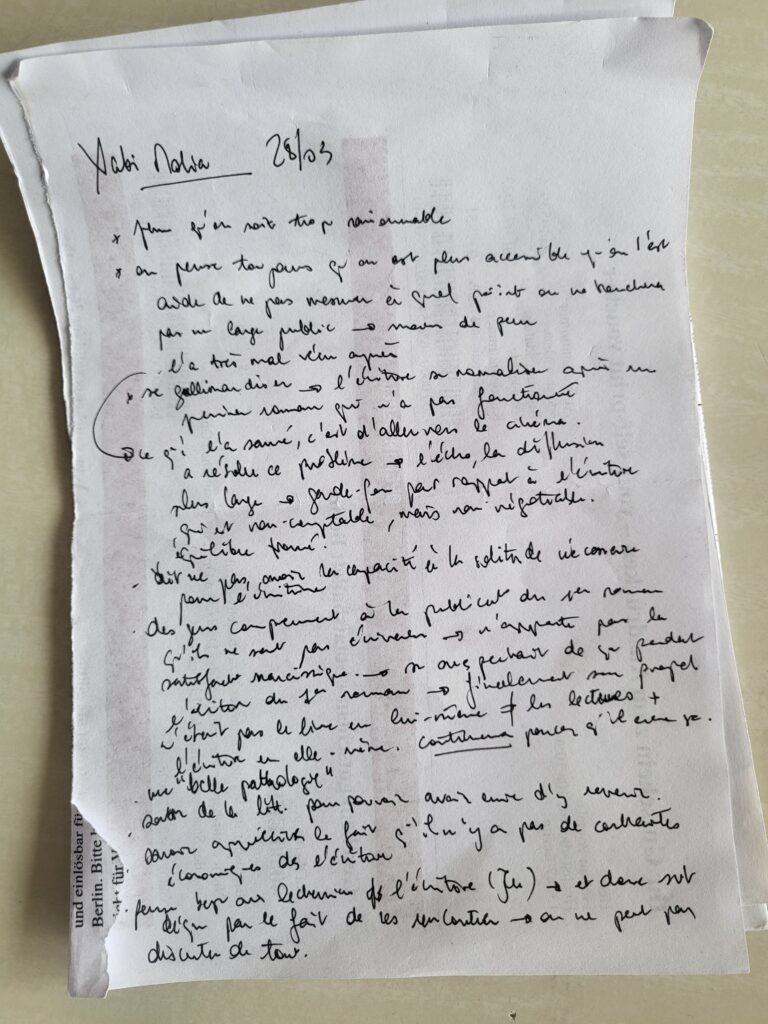 Xabi Molia 28/03
* peur qu'on soit trop raisonnable
* on pense toujours qu'on est plus accessible qu'on l'est
aide de ne pas mesurer à quel point on ne touchera
pas un large public → moins de peur
l'a très mal vécu après
* se gallimardiser → l'écriture se normaliser après un
premier roman qui n'a pas fonctionné
ce qui l'a sauvé, c'est d'aller vers le cinéma.
a résolu ce problème → l'écho, la diffusion
plus large → garde-fou par rapport à l'écriture
qui est non-comptable, mais non négociable.
équilibre trouvé.
- dit ne pas avoir la capacité à la solitude nécessaire
pour l'écriture
- des gens comprennent à la publicat du 1er roman
qu'ils ne sont pas écrivains → n'apporte pas la
satisfact narcissique. → se
l'écriture du 1er roman → finalement son projet
n'était pas le livre en lui-même ≠ les lectures +
l'écriture en elle-même. continuera pour
une "belle pathologie"
- sortir de la litt. pour pouvoir avoir envie d'y revenir.
- savoir apprécier le fait qu'il n'y a pas de contraintes
économiques de l'écriture
- sur le chemin de l'écriture → et donc soit
par le fait de les rencontrer → on ne peut pas
discuter de tout.
und einlösbar fü
Berlin. Bitte
für V